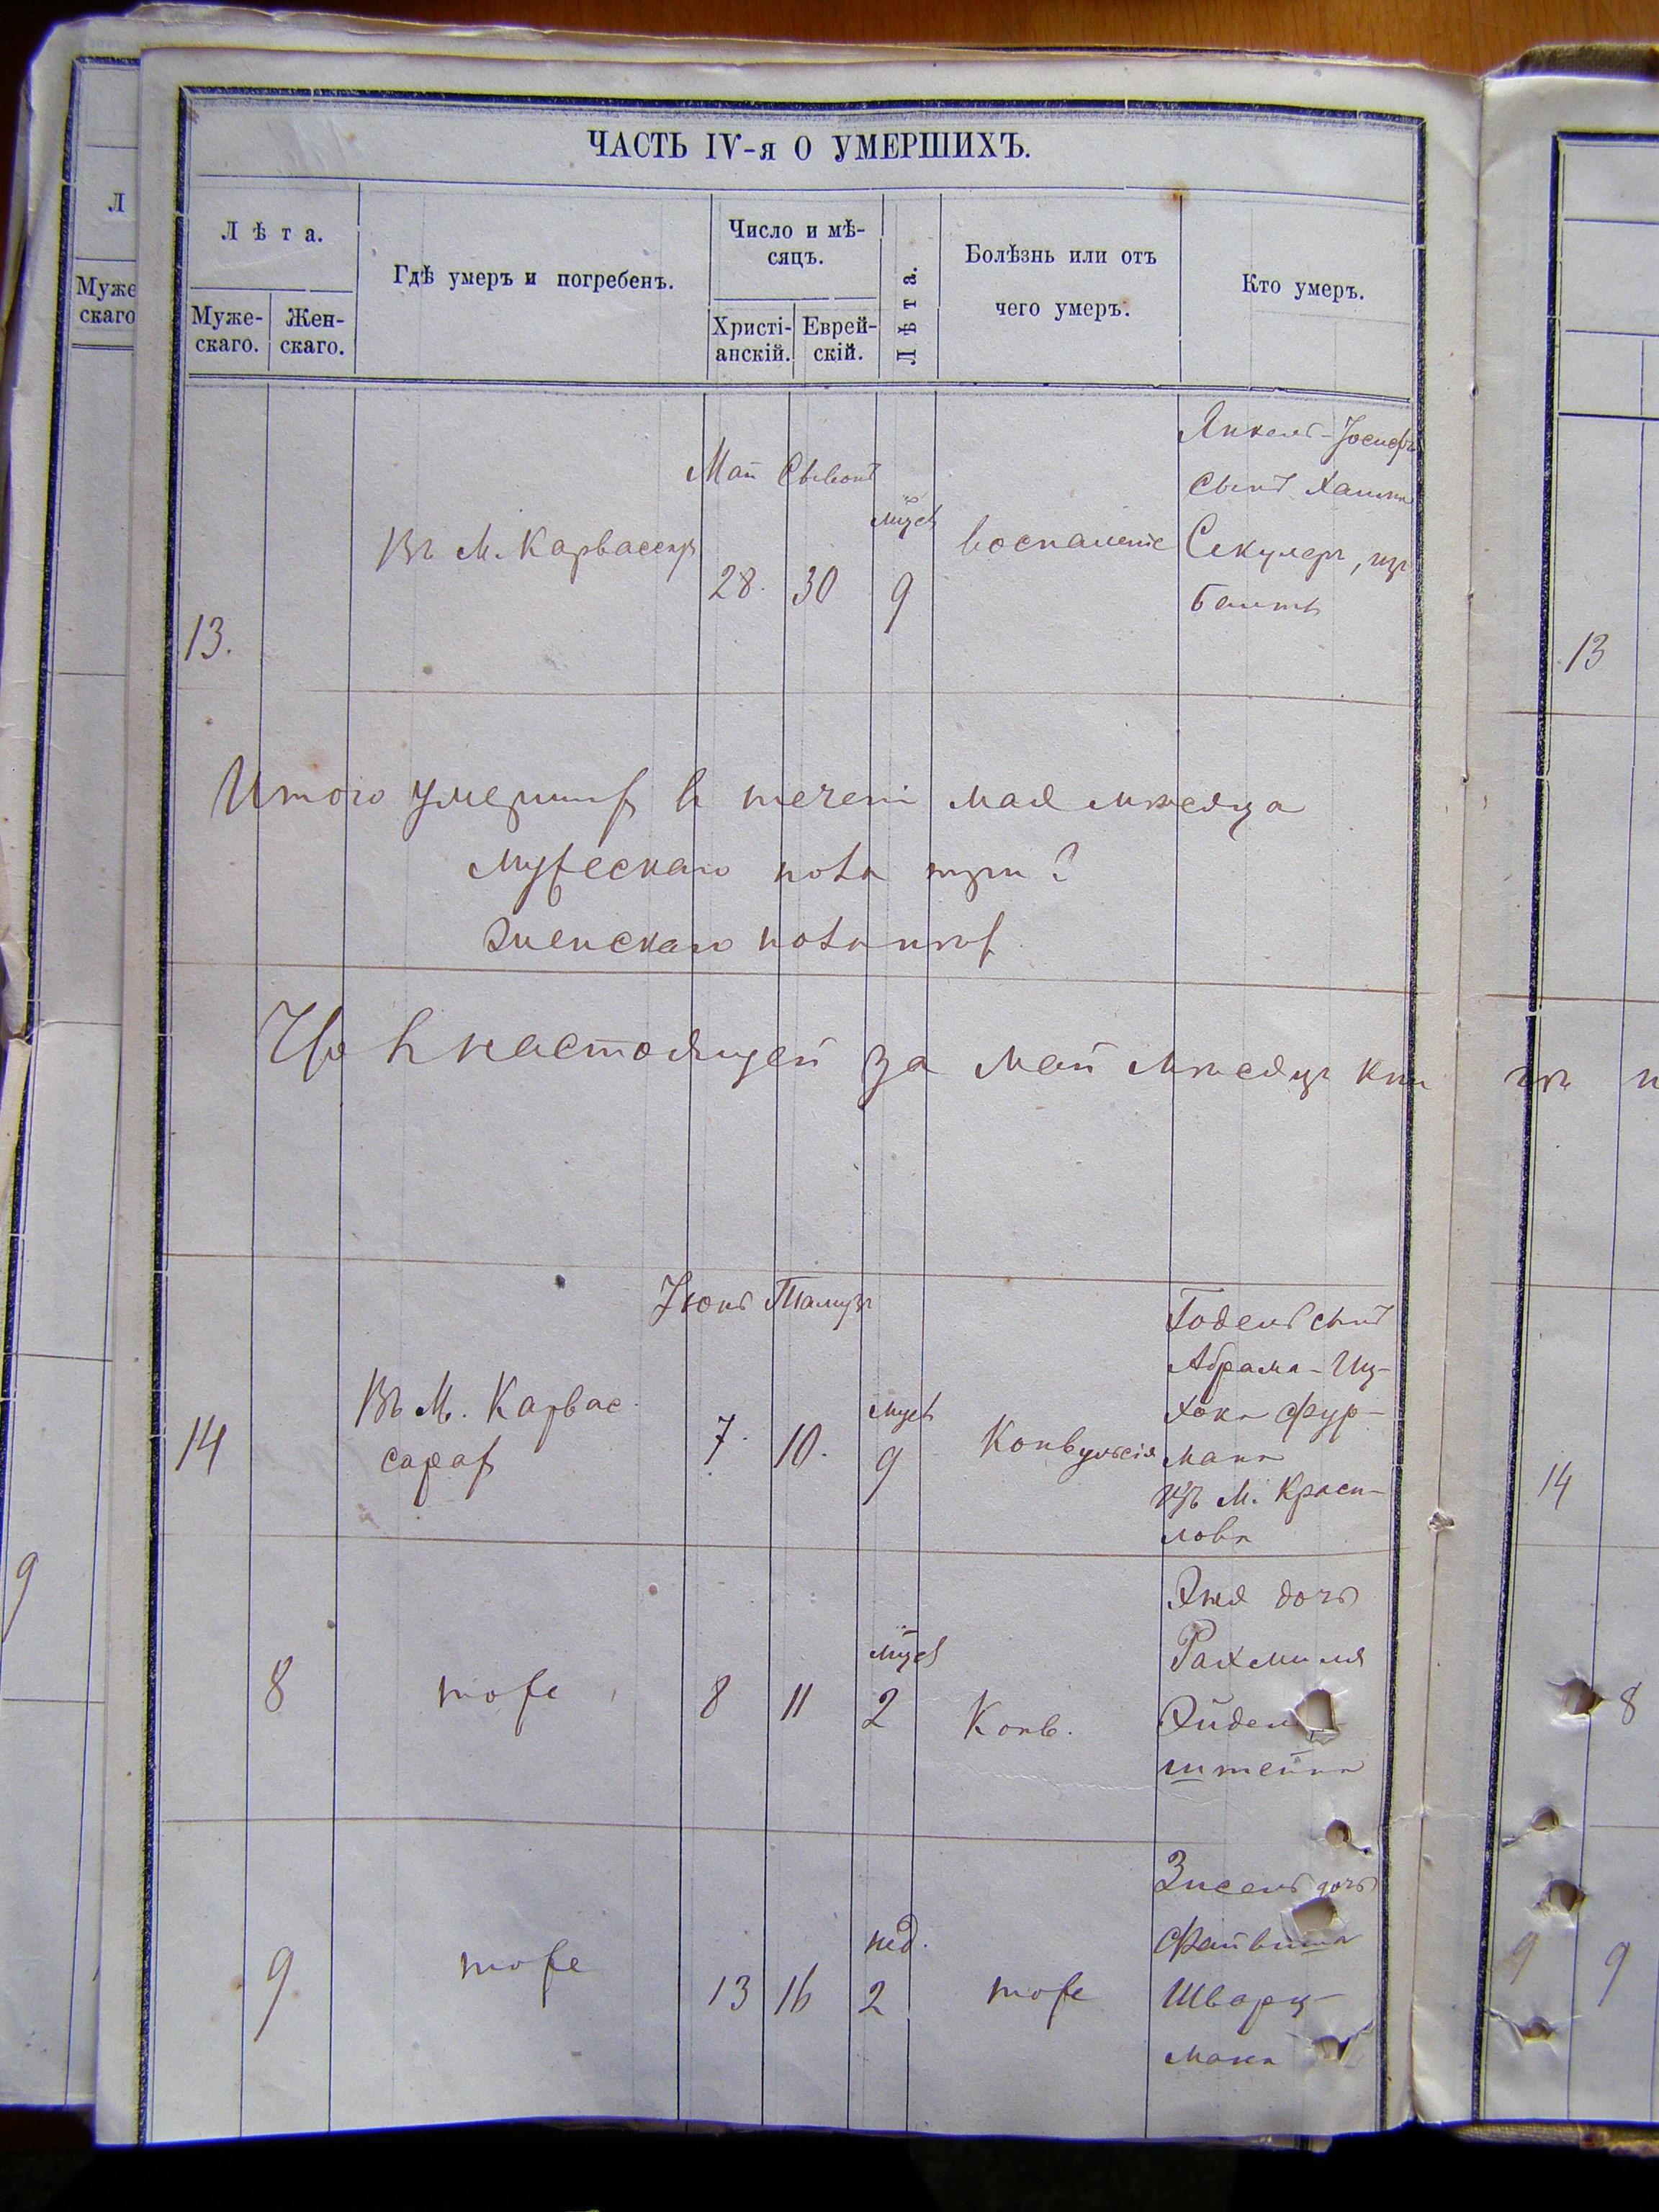 ЧАСТЬ IV-я О УМЕРШИХЪ.
Лѣта.
Муже-
скаго.
Жен-
скаго.
Гдѣ умеръ и погребенъ.
Число и мѣ-
сяцъ.
Христі-
анскій.
Еврей-
скій.
Лѣта.
Болѣзнь или отъ
чего умеръ.
Кто умеръ.
13.
Въ М. Карвассар
Май
28.
30
9
воспаленіе
Янкель-Іосифъ
сынъ Хаима
Секулеръ, изъ
Балты
Итого умершихъ в течени мая мѣсяца
мужескаго пола три
женскаго пола
Что в настоящей за май мѣсяцъ кни
гѣ
14
Въ М. Карвас
сарах
Іюнь
7.
Тамузъ
10.
9
Конвульсія
Годель сынъ
Абрама-Иц-
хока Фур-
мана
изъ М. Краси-
лова
8
тоже
8
11
2
Конв.
дочь
Рахмиля
Эйдель
штейна
9
тоже
13
16
нед.
2
тоже
Зисель дочь
Файвиша
Шварц-
мана
Л
Муже
скаго
9
13
14
8
9
9